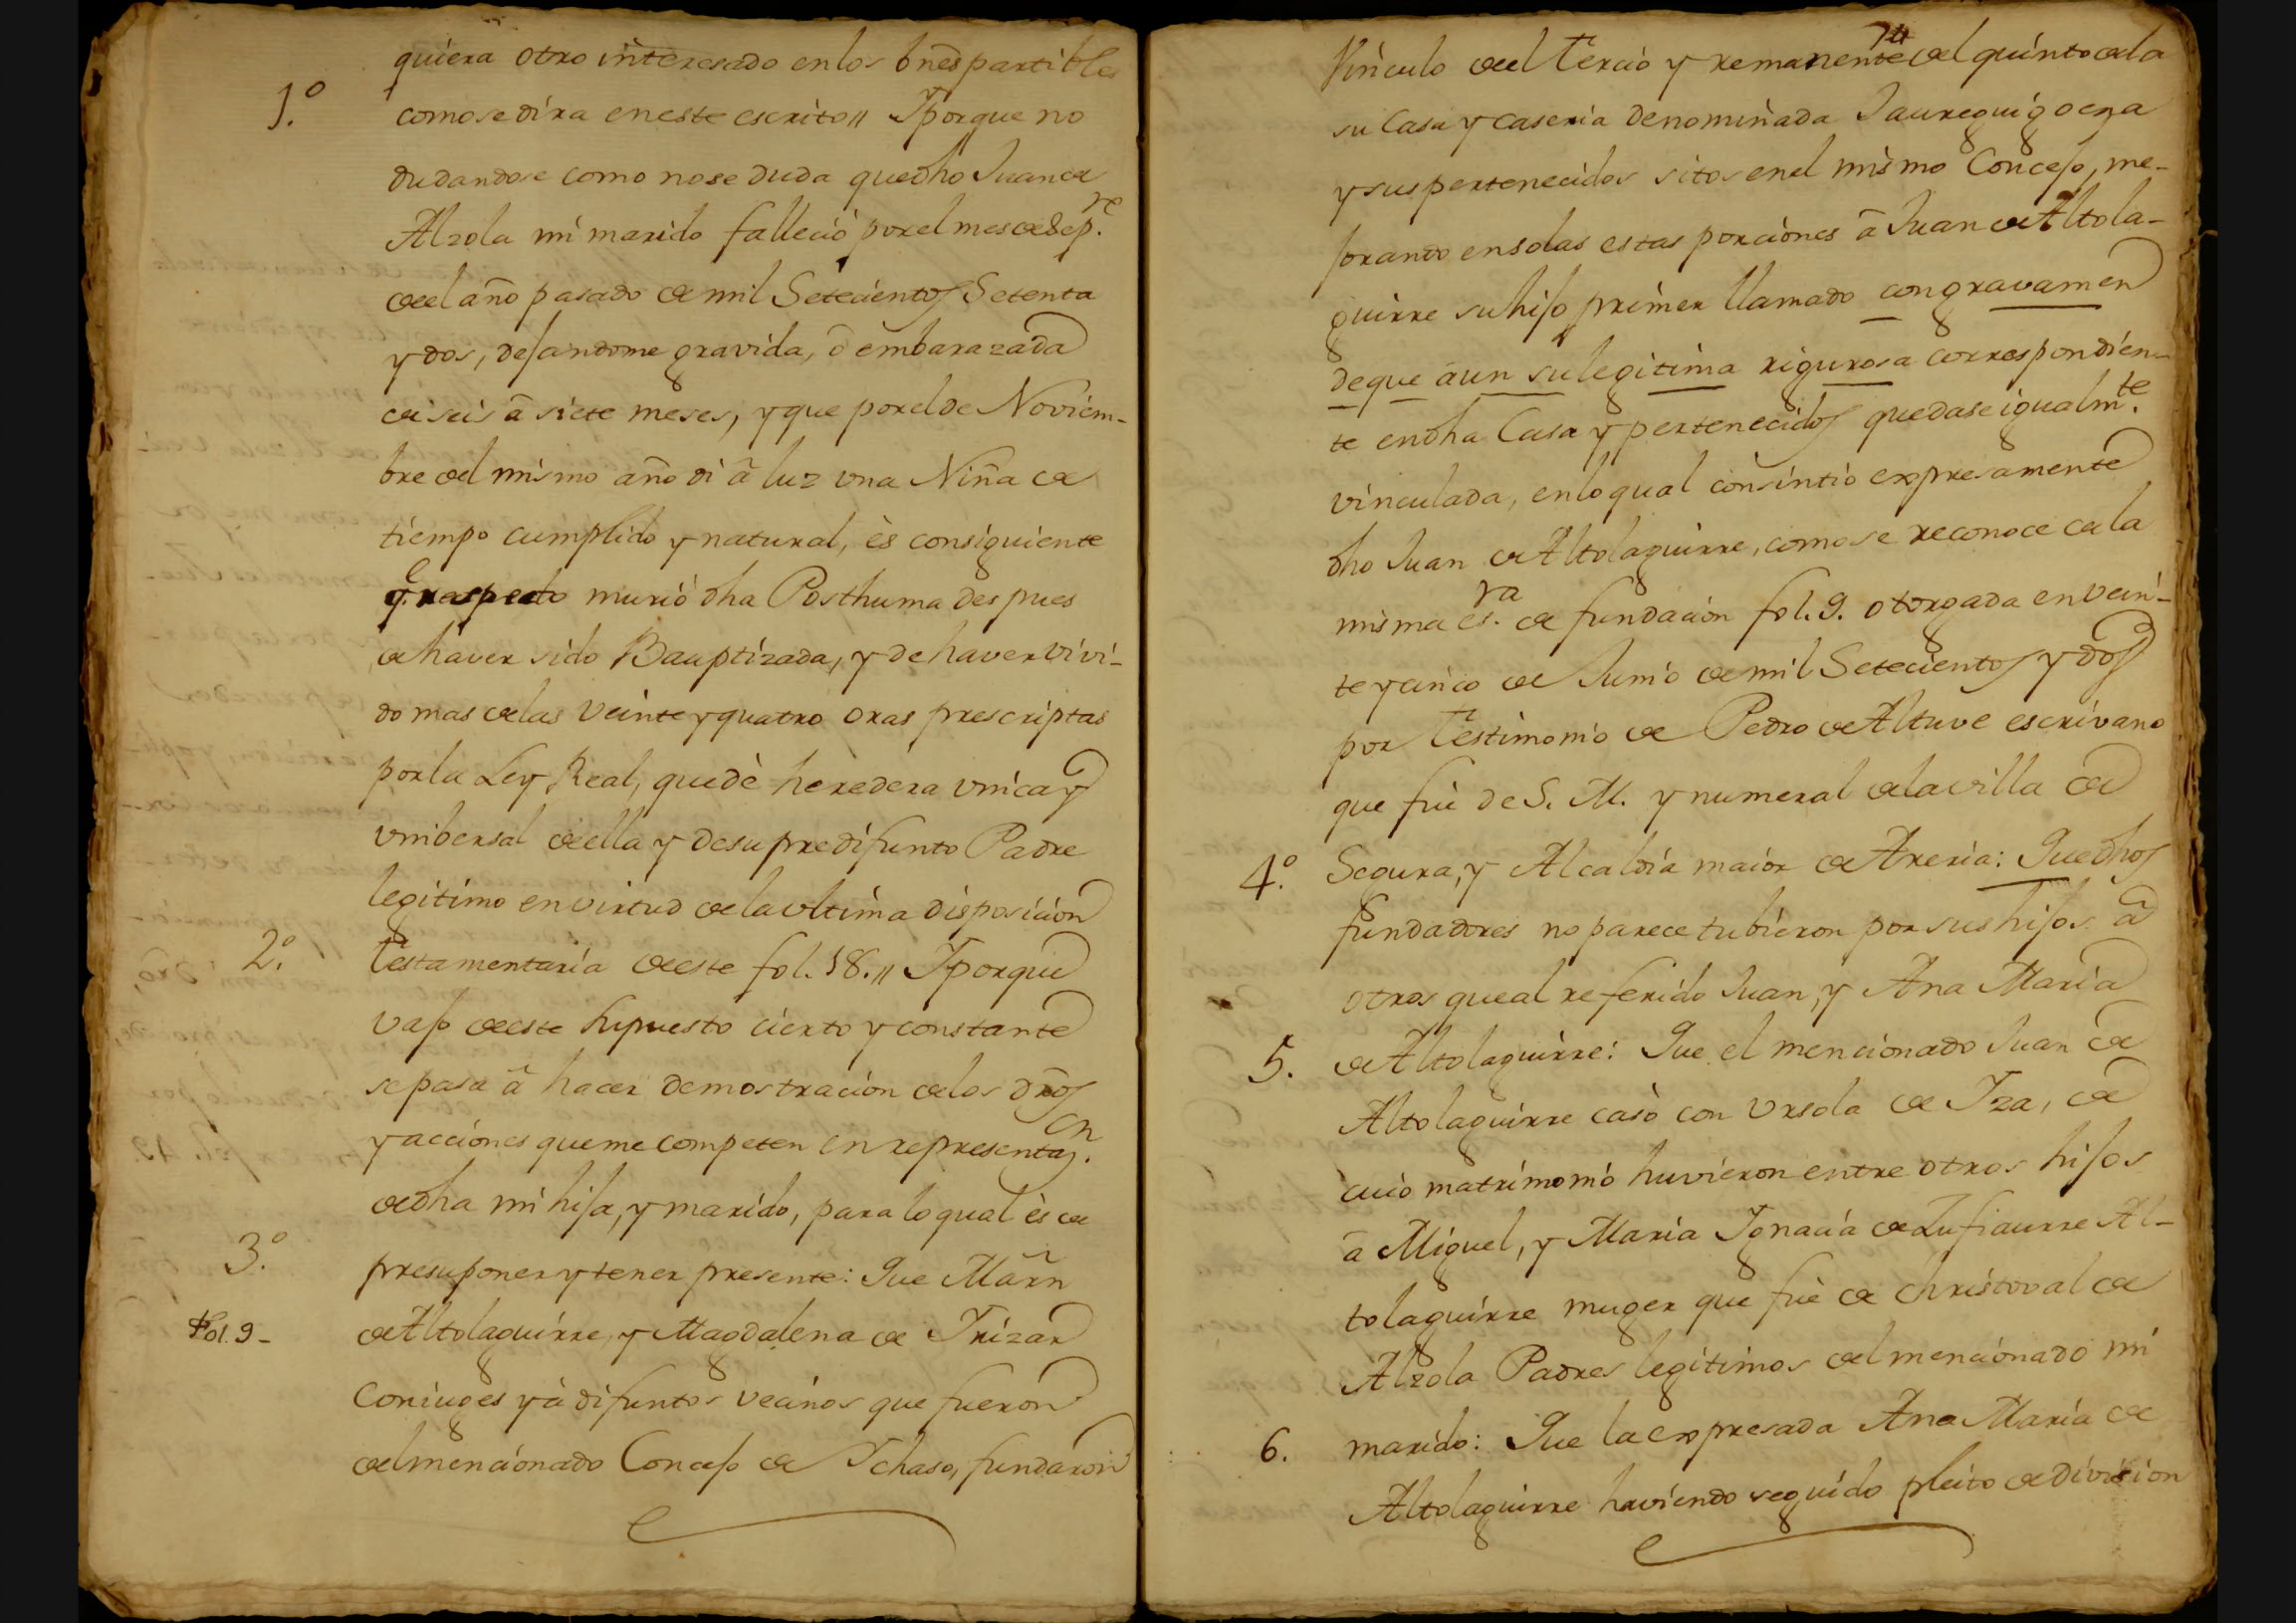 quiera otro interesado en los bñes partibles
1.º como se dira en este escrito // Y porque no
dudandose como no se duda que dho Juan de
Alzola mi marido falleció por el mes de Sep.re
de el año pasado de mil Setecientos Setenta
y dos, dejandome gravida, ò embarazada
de seis â siete meses, y que por el de Noviem-
bre del mismo año di â luz vna Niña de
tiempo cumplido y natural, ès consiguiente
q.e respecto murió dha Posthuma despues
de haver sido Bauptizada, y de haver vivi-
do mas de las veinte y quatro oras prescriptas
por la Ley Real, quedè heredera vnica y
vnibersal de ella y de su predifunto Padre
legitimo en virtud de la vltima disposicion
2.º testamentaria de este fol. 18. // Y porque
vajo de este supuesto cierto y constante
se pasa â hacer demostracion de los dr̃os
y acciones que me competen en representaz.on
de dha mi hija, y marido, para lo qual ès de
3.º presuponer y tener presente: Que Mañn
Fol. 9- de Altolaguirre, y Magdalena de Yrizar
Coniuges yà difuntos vecinos que fueron
del mencionado Concejo de Ychaso, fundaron
74
Vinculo de el tercio y remanente del quinto de la
su Casa y caseria denominada Jaureguigoena
y sus pertenecidos sitos en el mismo Concejo, me-
jorando en solas estas porciones â Juan de Altola-
guirre su hijo primer llamado con gravamen
de que âun su legitima rigurosa correspondien-
te en dha Casa y pertenecidos quedase igualm.te
vinculada, en lo qual consintio expresamente
dho Juan de Altolaguirre, como se reconoce de la
misma es.ra de fundacion fol. 9. otorgada en vein-
te y cinco de Junio de mil Setecientos y dos
por testimonio de Pedro de Altuve escrivano
que fuè de S. M. y numeral de la villa de
4.º Segura, y Alcaldia maior de Areria: Que dhos
fundadores no parece tubieron por sus hijos â
otros que al referido Juan, y Ana Maria
5. de Altolaguirre: Que el mencionado Juan de
Altolaguirre casò con Vrsola de Yza, de
cuio matrimonio huvieron entre otros hijos
â Miguel, y Maria Ygnacia de Lufiaurre Al-
tolaguirre muger que fuè de Christoval de
Alzola Padres legitimos del mencionado mi
6. marido: Que la expresada Ana Maria de
Altolaguirre haviendo seguido pleito de division